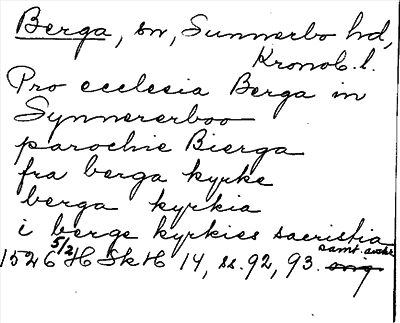 Berga, sn, Sunnerbo hd,
Kronob. l.
Pro ecclesia Berga in
Synnererboo
parochie Bierga
fra berga kyrke
berga kyrkia
i berge kyrkies sacristia
1526 5/2 H Sk H 14, ss. 92, 93. samt. avskr.